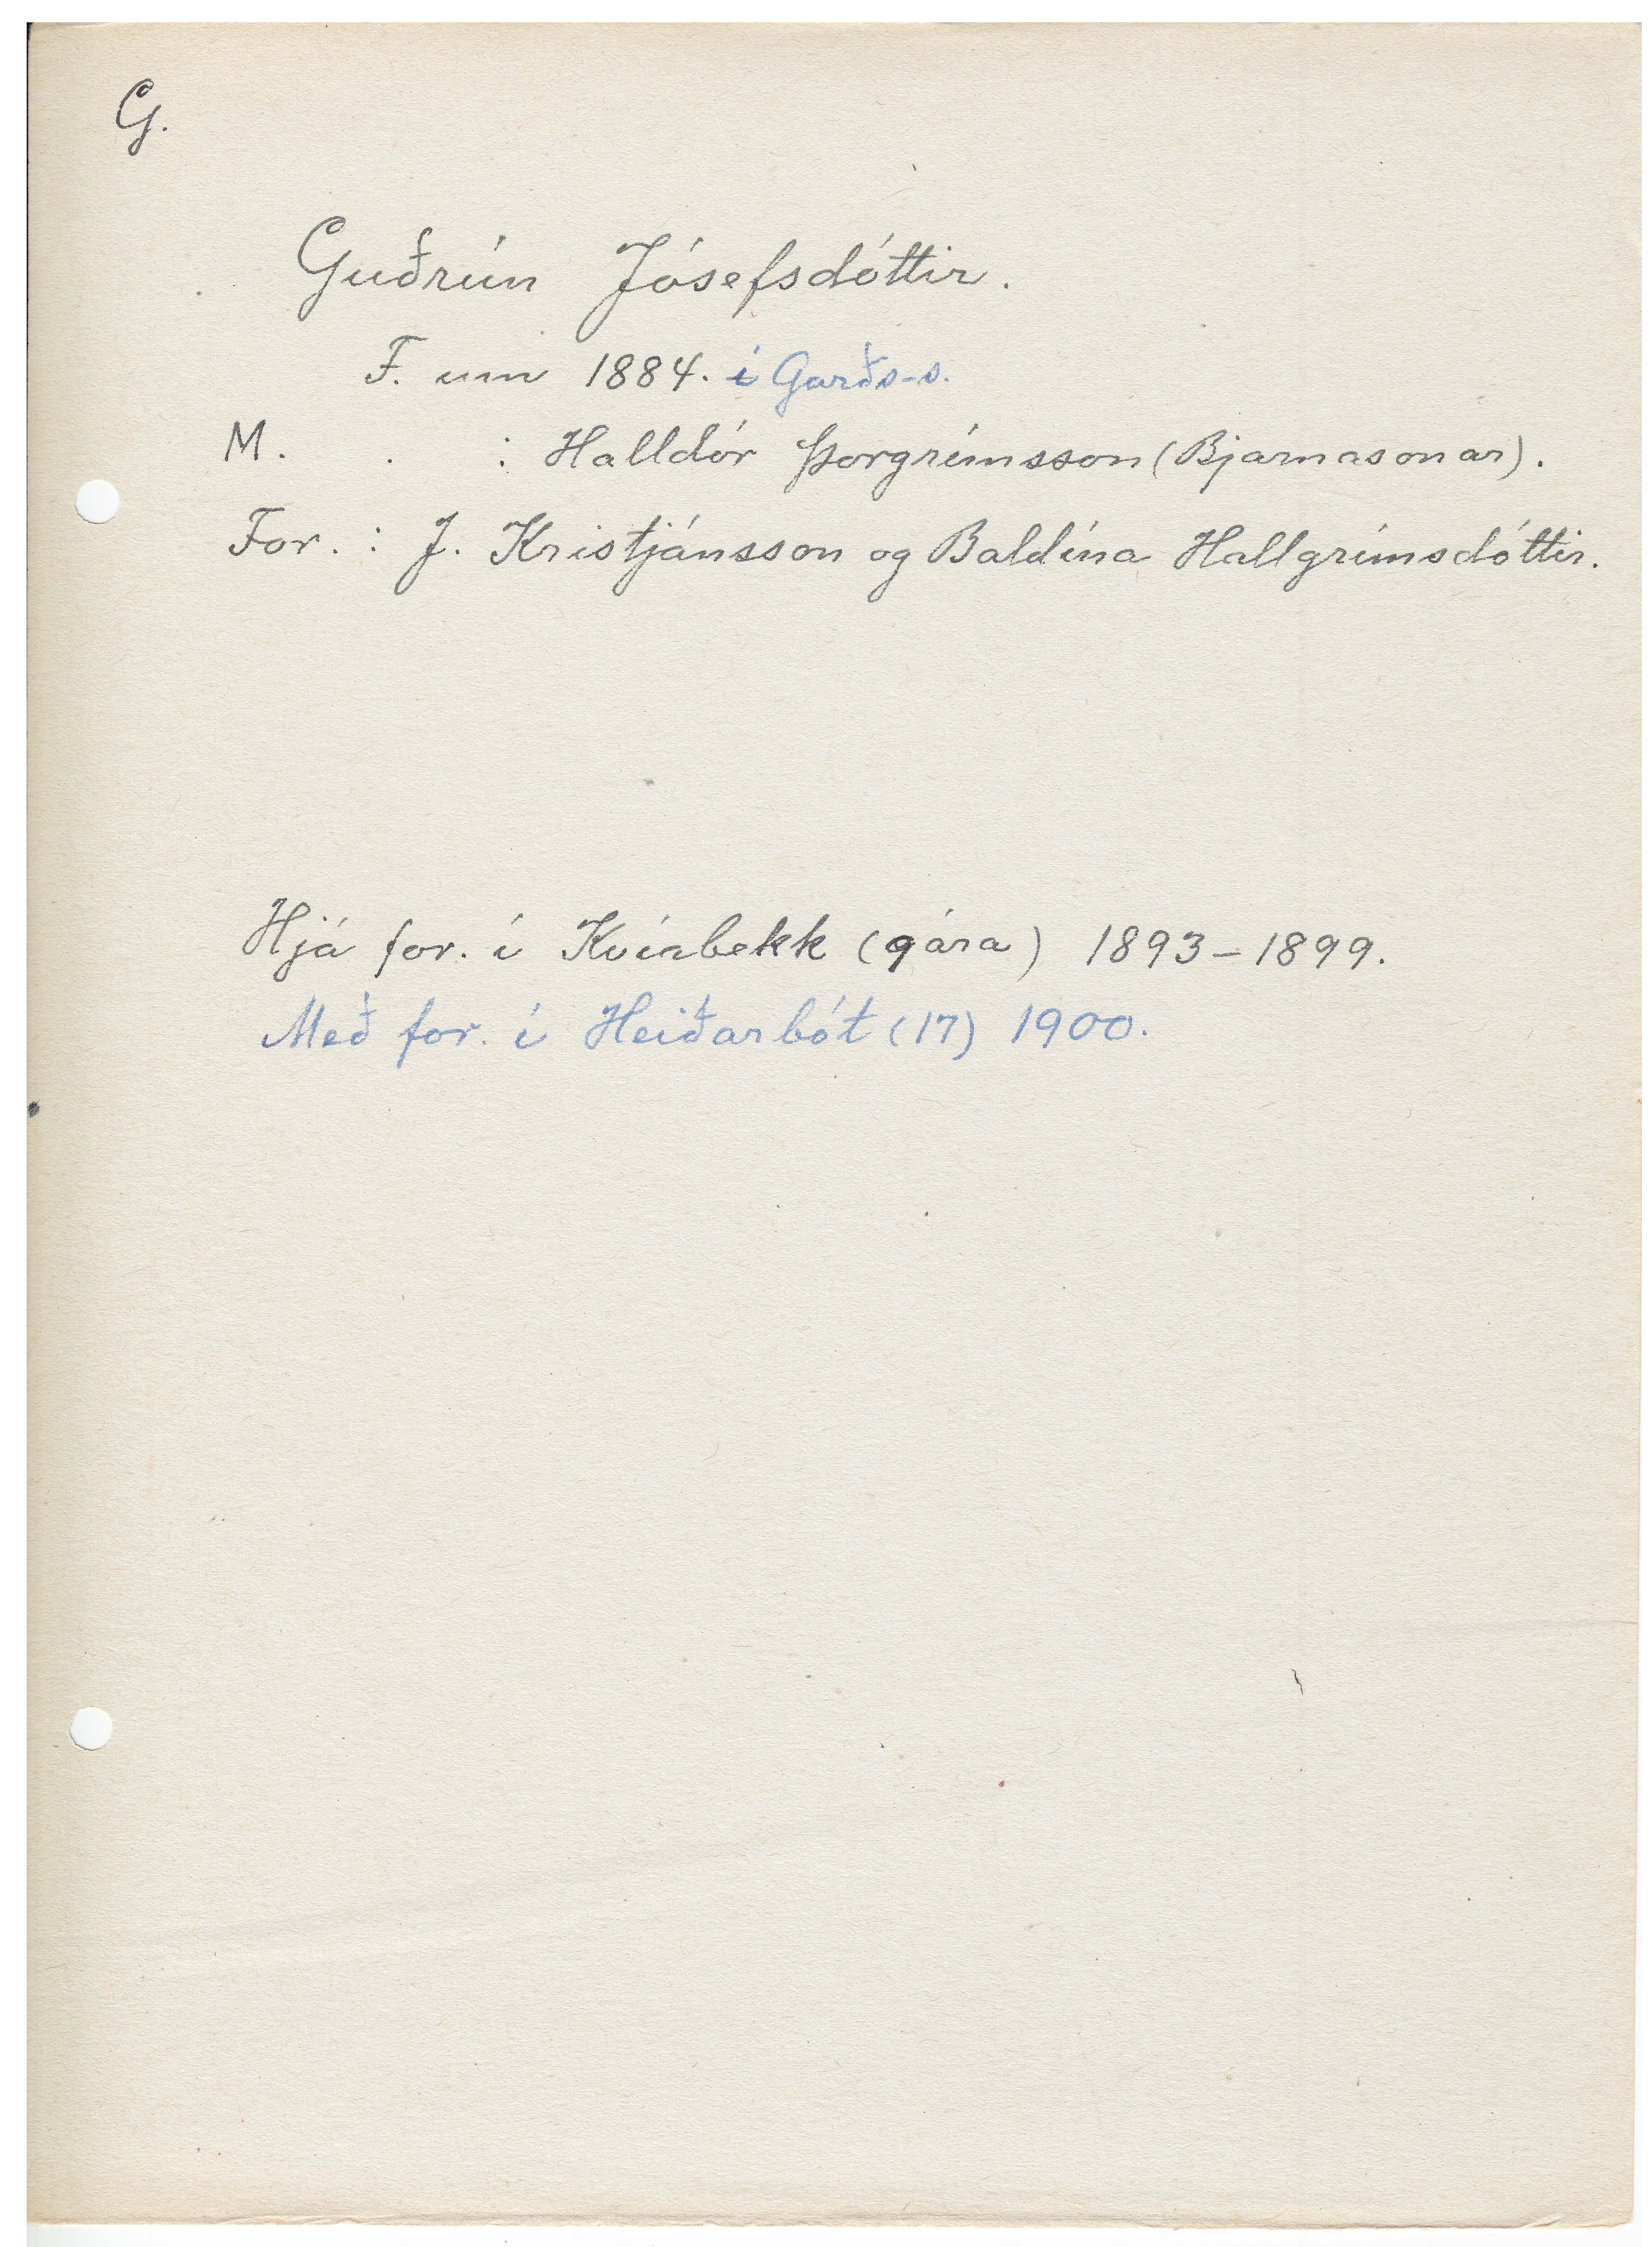 G.
Guðrún Jósefsdóttir.
F. um 1884. í Garðs-s.
M. . : Halldór Þorgrímsson (Bjarnasonar).
For. : J. Kristjánsson og Baldína Hallgrímsdóttir.
Hjá for. í Kvíabekk (9 ára) 1893-1899.
Með for. í Heiðarbót (17) 1900.